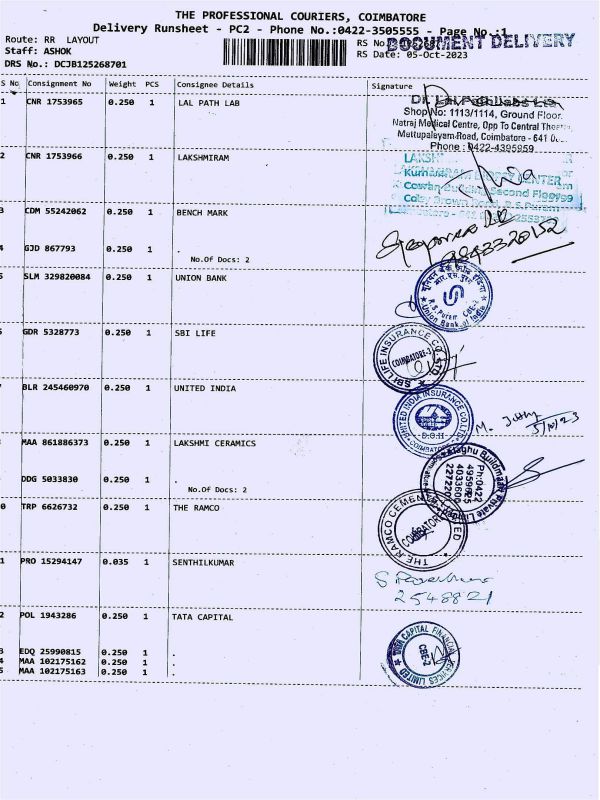 THE PROFESSIONAL COURIERS, COIMBATORE
Delivery Runsheet - PC2 - Phone No.:0422-3505555 - Page No.:1
Route: RR LAYOUT
RS No
DOCUMENT DELIVERY
Staff: ASHOK
RS Date: 05-Oct-2023
DRS No.: DCJB125268701
S No Consignment No Weight PCS Consignee Details Signature
1 CNR 1753965 0.250 1 LAL PATH LAB
Dr. Lal PathLabs Ltd
Shop No: 1113/1114, Ground Floor.
Natraj Medical Centre, Opp To Central Theatre,
Mettupalayam Road, Coimbatore - 641
Phone : 0422-4395959
2 CNR 1753966 0.250 1 LAKSHMIRAM
CENTER
Second Floor
3 CDM 55242062 0.250 1 BENCH MARK
9843320152
4 GJD 867793 0.250 1 .
No.Of Docs: 2
5 SLM 329820084 0.250 1 UNION BANK
यूनियन बैंक ऑफ इंडिया
आर.एस.पुरम
R.S.Puram CBE-2
Union Bank of India
6 GDR 5328773 0.250 1 SBI LIFE
SBI LIFE INSURANCE CO. LTD
COIMBATORE-2
7 BLR 245460970 0.250 1 UNITED INDIA
UNITED INDIA INSURANCE CO. LTD
D.O.II
COIMBATORE
M.
5/10/23
MAA 861886373 0.250 1 LAKSHMI CERAMICS
Raghu Buildmart Private Limited
Ph:0422
4959625
4033600
2272200
DDG 5033830 0.250 1 .
No.Of Docs: 2
0 TRP 6626732 0.250 1 THE RAMCO
THE RAMCO CEMENTS LIMITED
COIMBATORE
1 PRO 15294147 0.035 1 SENTHILKUMAR
2548821
2 POL 1943286 0.250 1 TATA CAPITAL
TATA CAPITAL FINANCIAL SERVICES LIMITED
CBE-2
3 EDQ 25990815 0.250 1 .
4 MAA 102175162 0.250 1 .
5 MAA 102175163 0.250 1 .